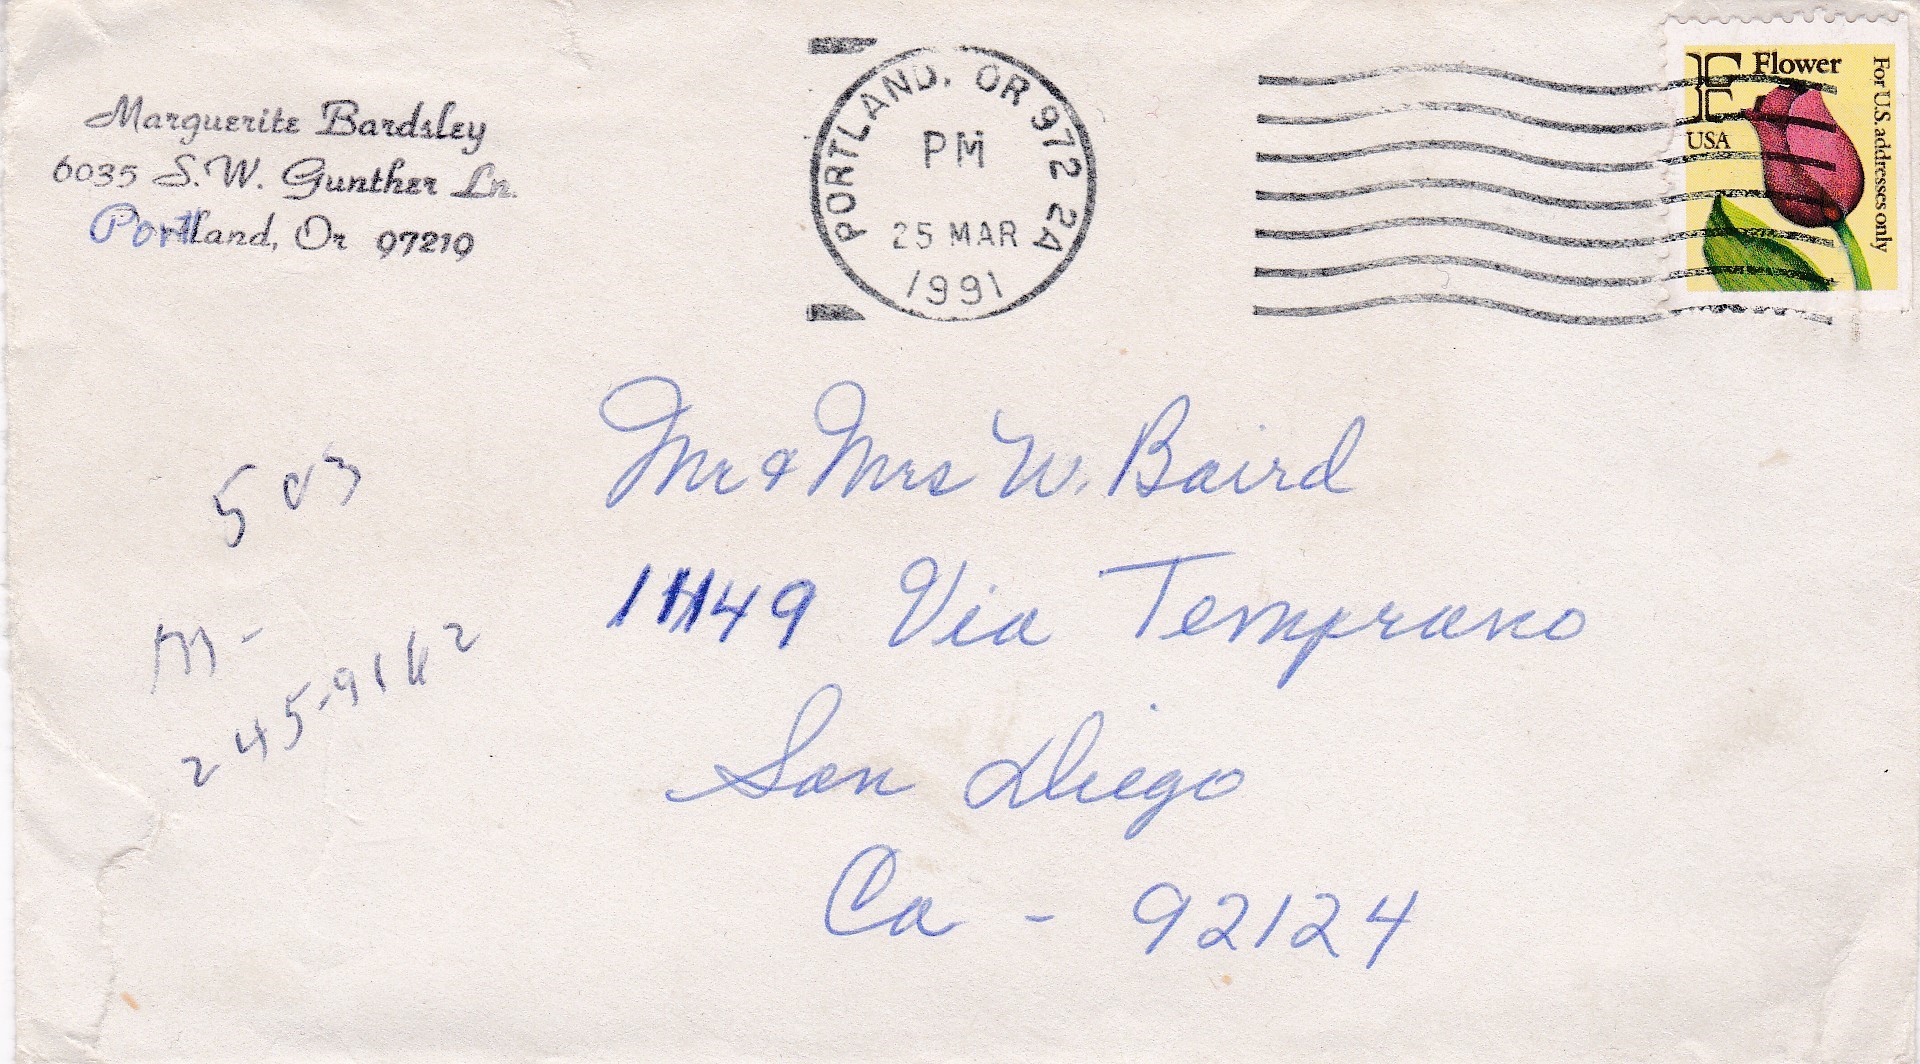 Marguerite Bardsley
6035 S.W. Gunther Ln.
Portland, Or 97219
PORTLAND, OR 972 2A
PM
25 MAR
1991
F Flower
USA
For U.S. addresses only
Mr & Mrs W. Baird
Via Temprano
San Diego
Ca - 92124
503
M-